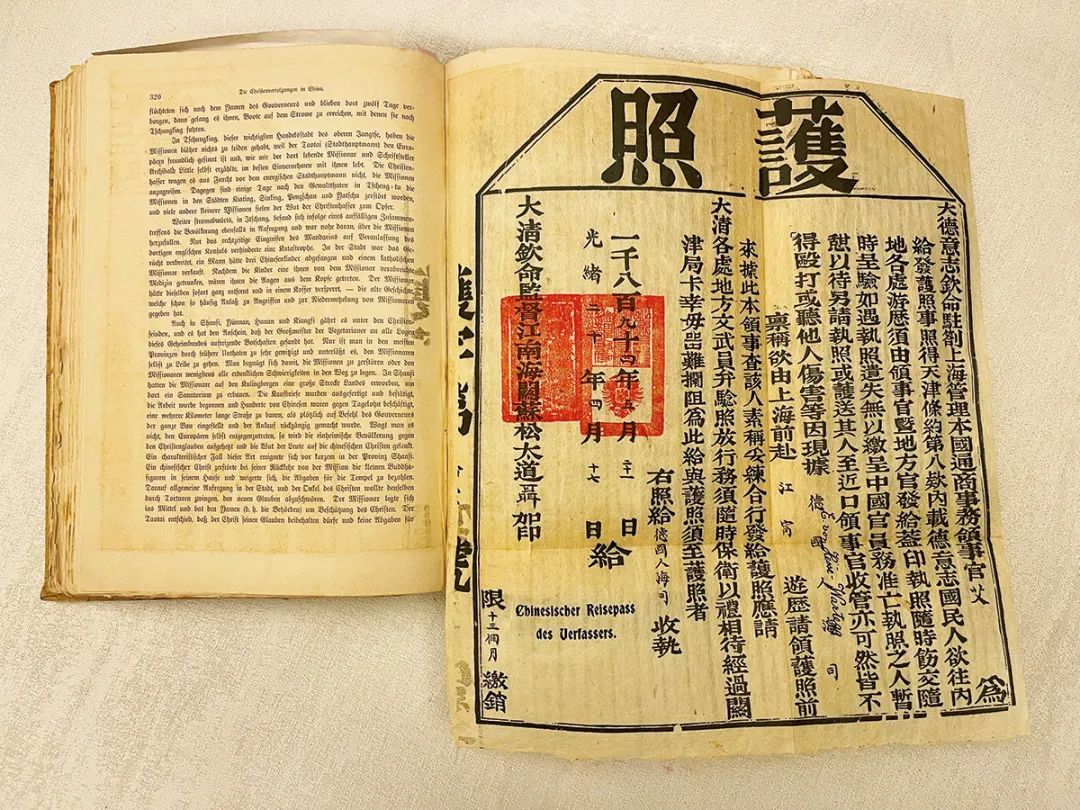 320
Die Christenverfolgungen in China.
flüchteten sich nach dem Yamen des Gouverneurs und blieben dort zwölf Tage ver-
borgen, dann gelang es ihnen, Boote auf dem Strome zu erreichen, mit denen sie nach
Tschungking fuhren.
In Tschungking, dieser wichtigsten Handelsstadt des obern Jangtse, haben die
Missionen bisher nichts zu leiden gehabt, weil der Taotai (Stadthauptmann) den Euro-
päern freundlich gesinnt ist und, wie mir der dort lebende Missionar und Schriftsteller
Archibald Little selbst erzählte, im besten Einvernehmen mit ihnen lebt. Die Christen-
hasser wagen es aus Furcht vor dem energischen Stadthauptmann nicht, die Missionen
anzugreifen. Dagegen sind einige Tage nach den Gewaltthaten in Tscheng-tu die
Missionen in den Städten Kiating, Sinking, Pengschan und Patschu zerstört worden,
und viele andere kleinere Missionen fielen der Wut der Christenhasser zum Opfer.
Weiter stromabwärts, in Itschang, befand sich infolge eines auffälligen Zusammen-
treffens die Bevölkerung ebenfalls in Aufregung und war nahe daran, über die Missionen
herzufallen. Nur das rechtzeitige Eingreifen des Mandarins auf Veranlassung des
dortigen englischen Konsuls verhinderte eine Katastrophe. In der Stadt war das Ge-
rücht verbreitet, ein Mann hätte drei Chinesenkinder abgefangen und einem katholischen
Missionar verkauft. Nachdem die Kinder eine ihnen von dem Missionar verabreichte
Medizin getrunken, wären ihnen die Augen aus dem Kopfe getreten. Der Missionar
hätte dieselben sofort ganz entfernt und in einem Koffer versperrt, — die alte Geschichte,
welche schon so häufig Anlaß zu Angriffen und zur Niedermetzelung von Missionaren
gegeben hat.
Auch in Shansi, Jünnan, Hunan und Kiangsi gährt es unter den Christen-
feinden, und es hat den Anschein, daß der Großmeister der Vegetarianer an alle Logen
dieses Geheimbundes aufreizende Botschaften gesandt hat. Nur ist man in den meisten
Provinzen durch frühere Unthaten zu sehr gewitzigt und unterläßt es, den Missionaren
selbst zu Leibe zu gehen. Man begnügt sich damit, die Missionen zu zerstören oder den
Missionaren wenigstens alle erdenklichen Schwierigkeiten in den Weg zu legen. In Shansi
hatten die Missionare auf den Kulingbergen eine große Strecke Landes erworben, um
dort ein Sanatorium zu erbauen. Die Kaufbriefe wurden ausgefertigt und bestätigt,
die Arbeit wurde begonnen und Hunderte von Chinesen waren gegen Tagelohn beschäftigt,
eine mehrere Kilometer lange Straße zu bauen, als plötzlich auf Befehl des Gouverneurs
der ganze Bau eingestellt und der Ankauf rückgängig gemacht wurde. Wagt man es
nicht, den Europäern selbst entgegenzutreten, so wird die einheimische Bevölkerung gegen
den Christenglauben aufgehetzt und die Wut der Leute auf die chinesischen Christen gelenkt.
Ein charakteristischer Fall dieser Art ereignete sich vor kurzem in der Provinz Shansi.
Ein chinesischer Christ zerstörte bei seiner Rückkehr von der Mission die kleinen Buddha-
figuren in seinem Hause und weigerte sich, die Abgaben für die Tempel zu bezahlen.
Darauf allgemeine Aufregung in der Stadt, und der Onkel des Christen wollte denselben
durch Torturen zwingen, den neuen Glauben abzuschwören. Der Missionar legte sich
ins Mittel und bat den Yamen (d. h. die Behörden) um Beschützung des Christen. Der
Taotai entschied, daß der Christ seinen Glauben beibehalten dürfe und keine Abgaben für
護照
大德意志欽命駐劄上海管理本國通商事務領事官艾 為
給發護照事照得天津條約第八欵內載德意志國民人欲往內
地各處游歷須由領事官暨地方官發給蓋印執照隨時飭交隨
時呈驗如遇執照遺失無以繳呈中國官員務准亡執照之人暫
憇以待另請執照或護送其人至近口領事官收管亦可然皆不
得毆打或聽他人傷害等因現據 德國人海司
稟稱欲由上海前赴 江甯 遊歷請領護照前
來據此本領事查該人素稱妥練合行發給護照應請
大清各處地方文武員弁驗照放行務須隨時保衛以禮相待經過關
津局卡幸毋畱難攔阻為此給與護照須至護照者
右照給德國人海司收執
一千八百九十四年五月二十一日給
光緒二十年四月十七日
大清欽命監督江南海關蘇松太道聶如印
限十三個月繳銷
Chinesischer Reisepass
des Verfassers.